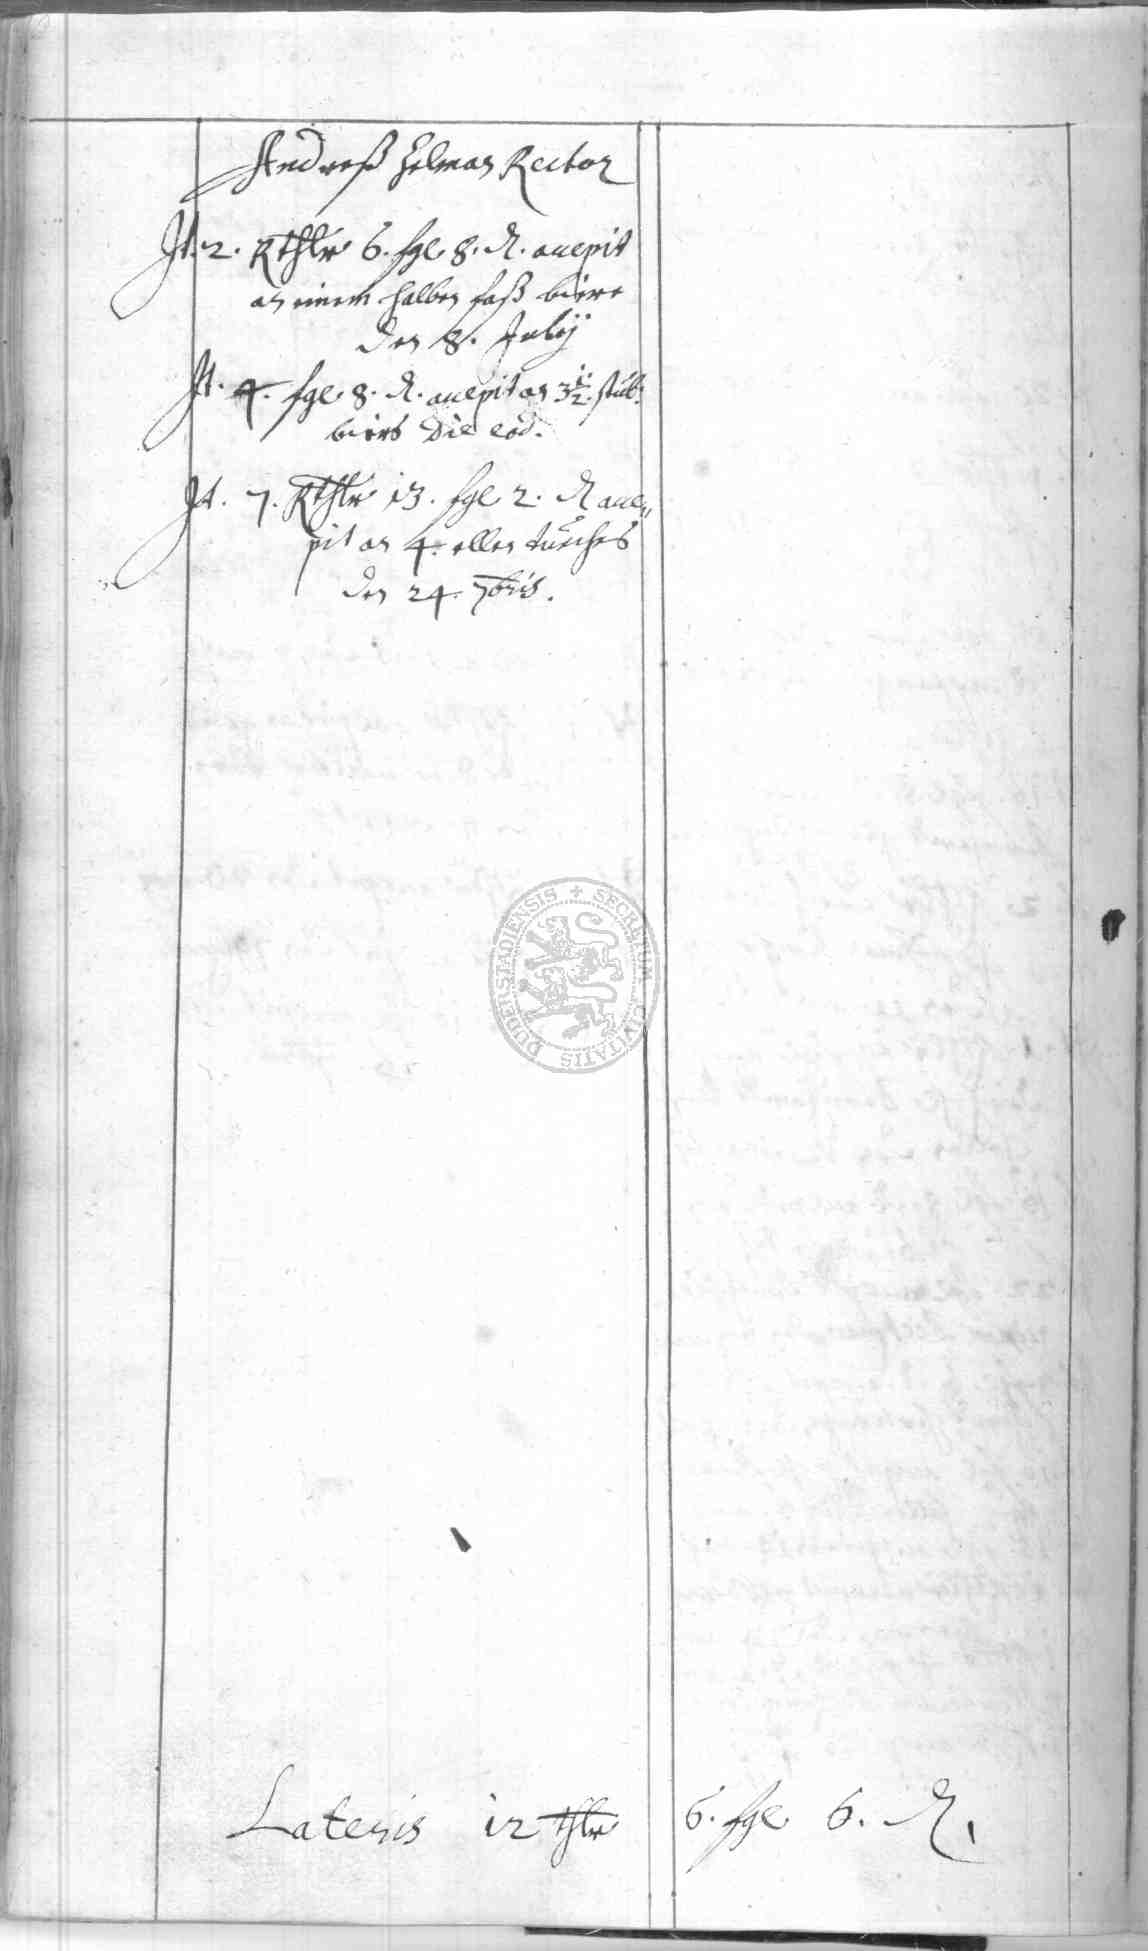 Andreß Helman Rector
It. 2. Rthlr 6. sgl. 8. ₰. accepit
an einem halben faß biers
den 8. Julij
It. 4. sgl. 8. ₰. accepit an 3½. stüb:
biers Die eod.
It. 7. Rthlr 13. sgl. 2. ₰ acce„
pit an 4. ellen tuches
den 24. 7bris.
SECRETUM CIVITATIS DUDERSTADIENSIS
Lateris 12 thlr 6. sgl. 6. ₰.